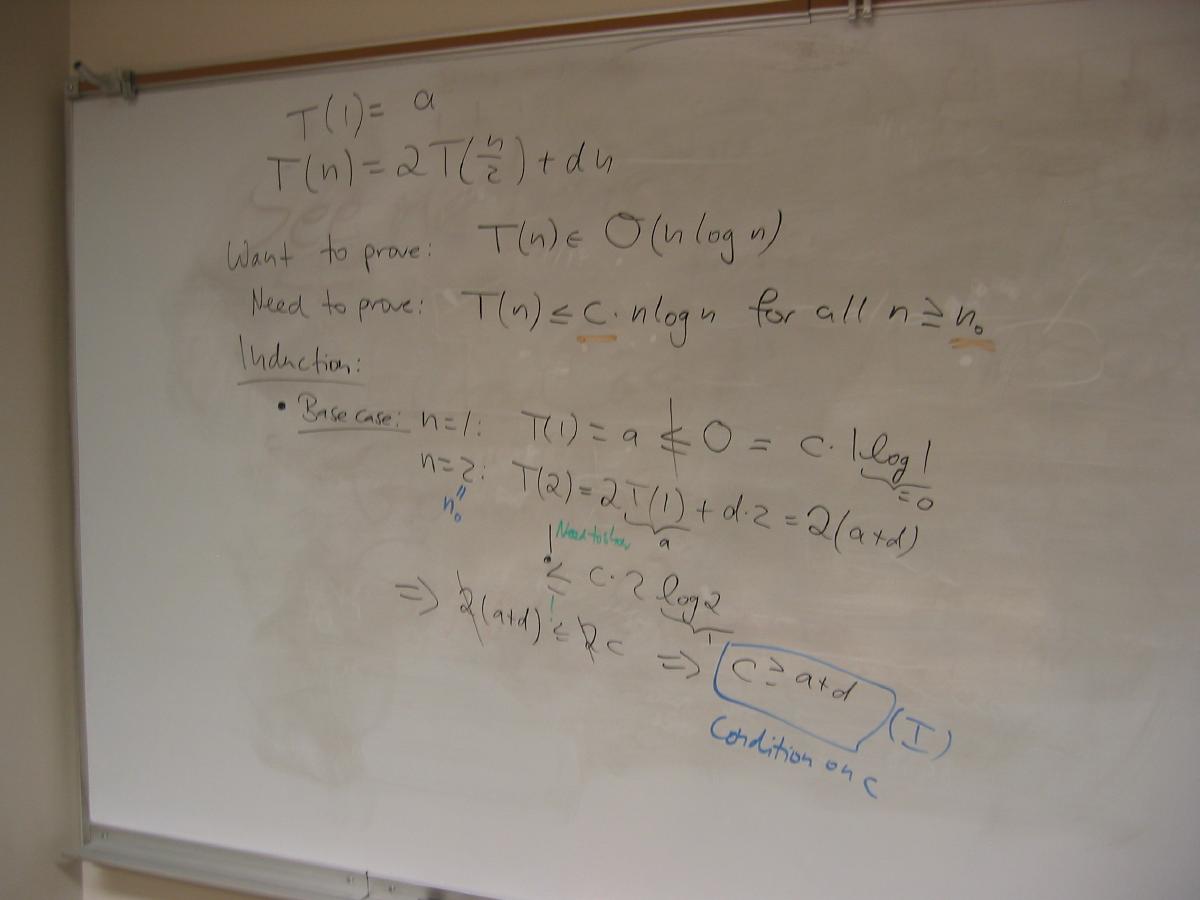 T(1) = a
T(n) = 2T(n/2) + dn
Want to prove: T(n) ∈ O(n log n)
Need to prove: T(n) ≤ c · n log n for all n ≥ n₀
Induction:
• Base case: n=1: T(1) = a ≰ 0 = c · 1 log 1
= 0
n=2: T(2) = 2T(1) + d·2 = 2(a+d)
n₀ a
Need to show
! ≤ c · 2 log 2
1
⇒ 2(a+d) ≤ 2c ⇒ c ≥ a+d (I)
Condition on c